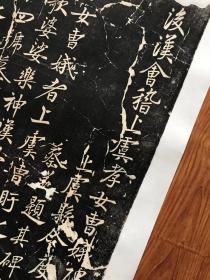 後漢會稽上虞孝女曹娥
上虞縣令度
蔡邕題其碑
女曹娥者上虞曹盱
歌婆娑樂神漢
四號慕